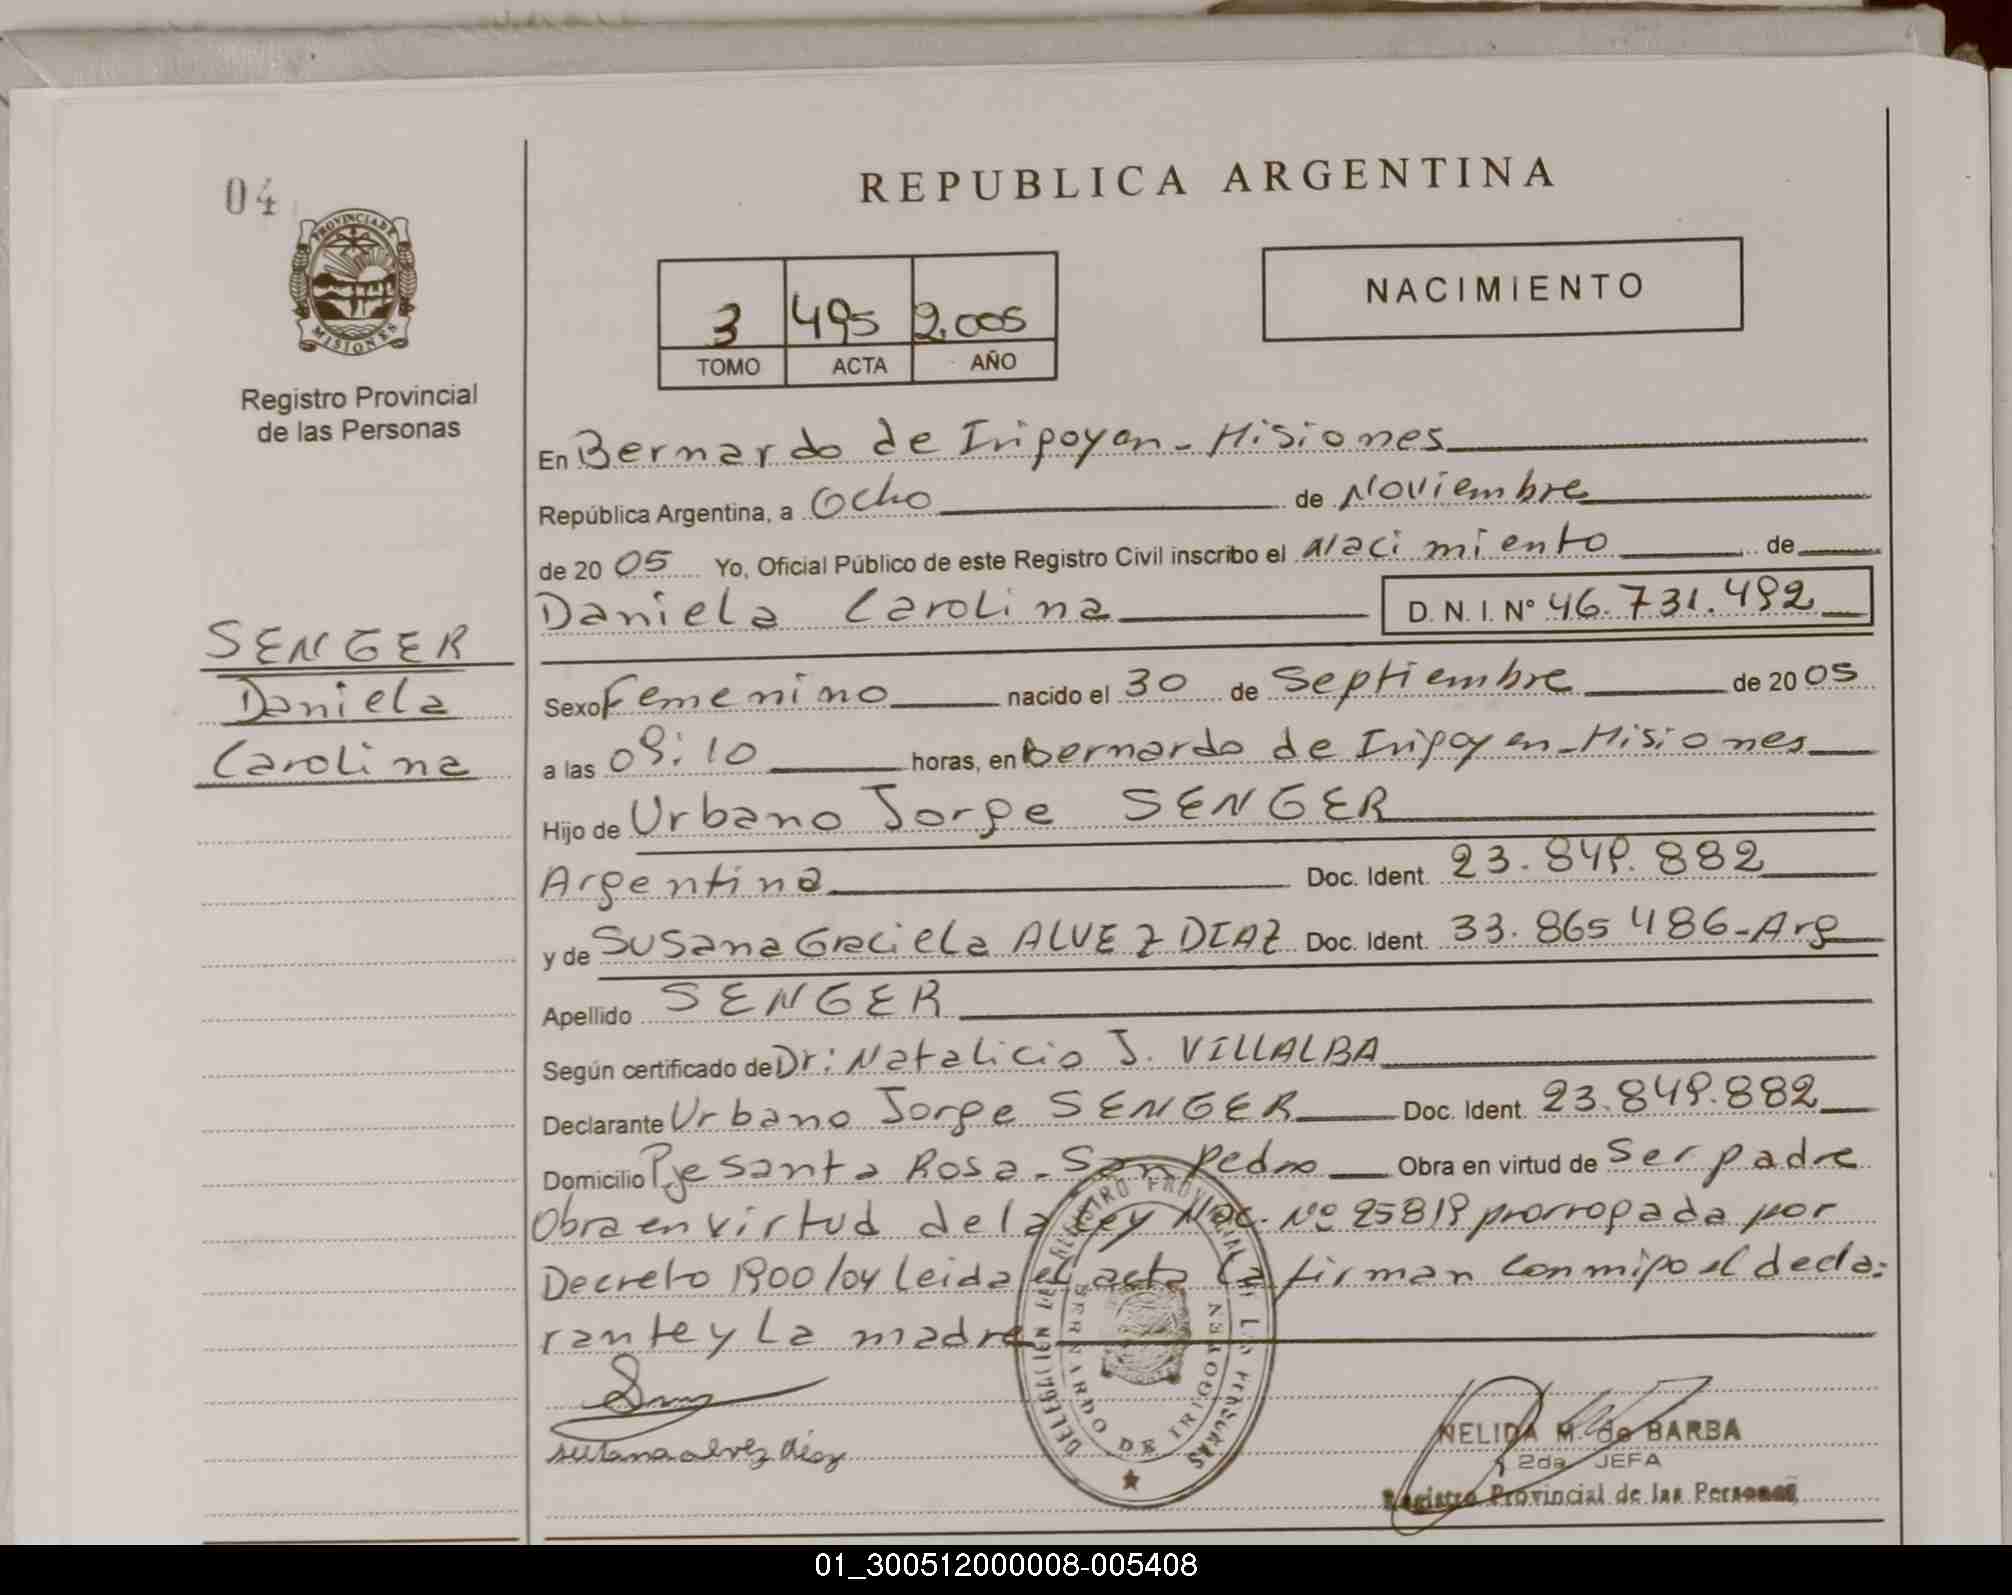 04
PROVINCIA DE
MISIONES
Registro Provincial
de las Personas
SENGER
Daniela
Carolina
REPUBLICA ARGENTINA
3 495 2.005
TOMO ACTA AÑO
NACIMIENTO
En Bernardo de Irigoyen - Misiones
República Argentina, a Ocho de Noviembre
de 20 05 Yo, Oficial Público de este Registro Civil inscribo el Nacimiento de
Daniela Carolina D. N. I. N° 46.731.492
Sexo Femenino nacido el 30 de Septiembre de 20 05
a las 09:10 horas, en Bernardo de Irigoyen - Misiones
Hijo de Urbano Jorge SENGER
Argentina Doc. Ident. 23.849.882
y de Susana Graciela ALVEZ DIAZ Doc. Ident. 33.865 486 - Arg
Apellido SENGER
Según certificado de Dr: Natalicio J. VILLALBA
Declarante Urbano Jorge SENGER Doc. Ident. 23.849.882
Domicilio Pje Santa Rosa - San Pedro Obra en virtud de Ser padre
Obra en virtud de la Ley Nac. Nº 25819 prorrogada por
Decreto 1900/04 Leida el acta La firman Conmigo el decla:
rante y La madre
DELEGACION DEL REGISTRO PROVINCIAL DE LAS PERSONAS
BERNARDO DE IRIGOYEN
susana alvez diaz
NELIDA M. de BARBA
2da. JEFA
Registro Provincial de las Personas
01_300512000008-005408